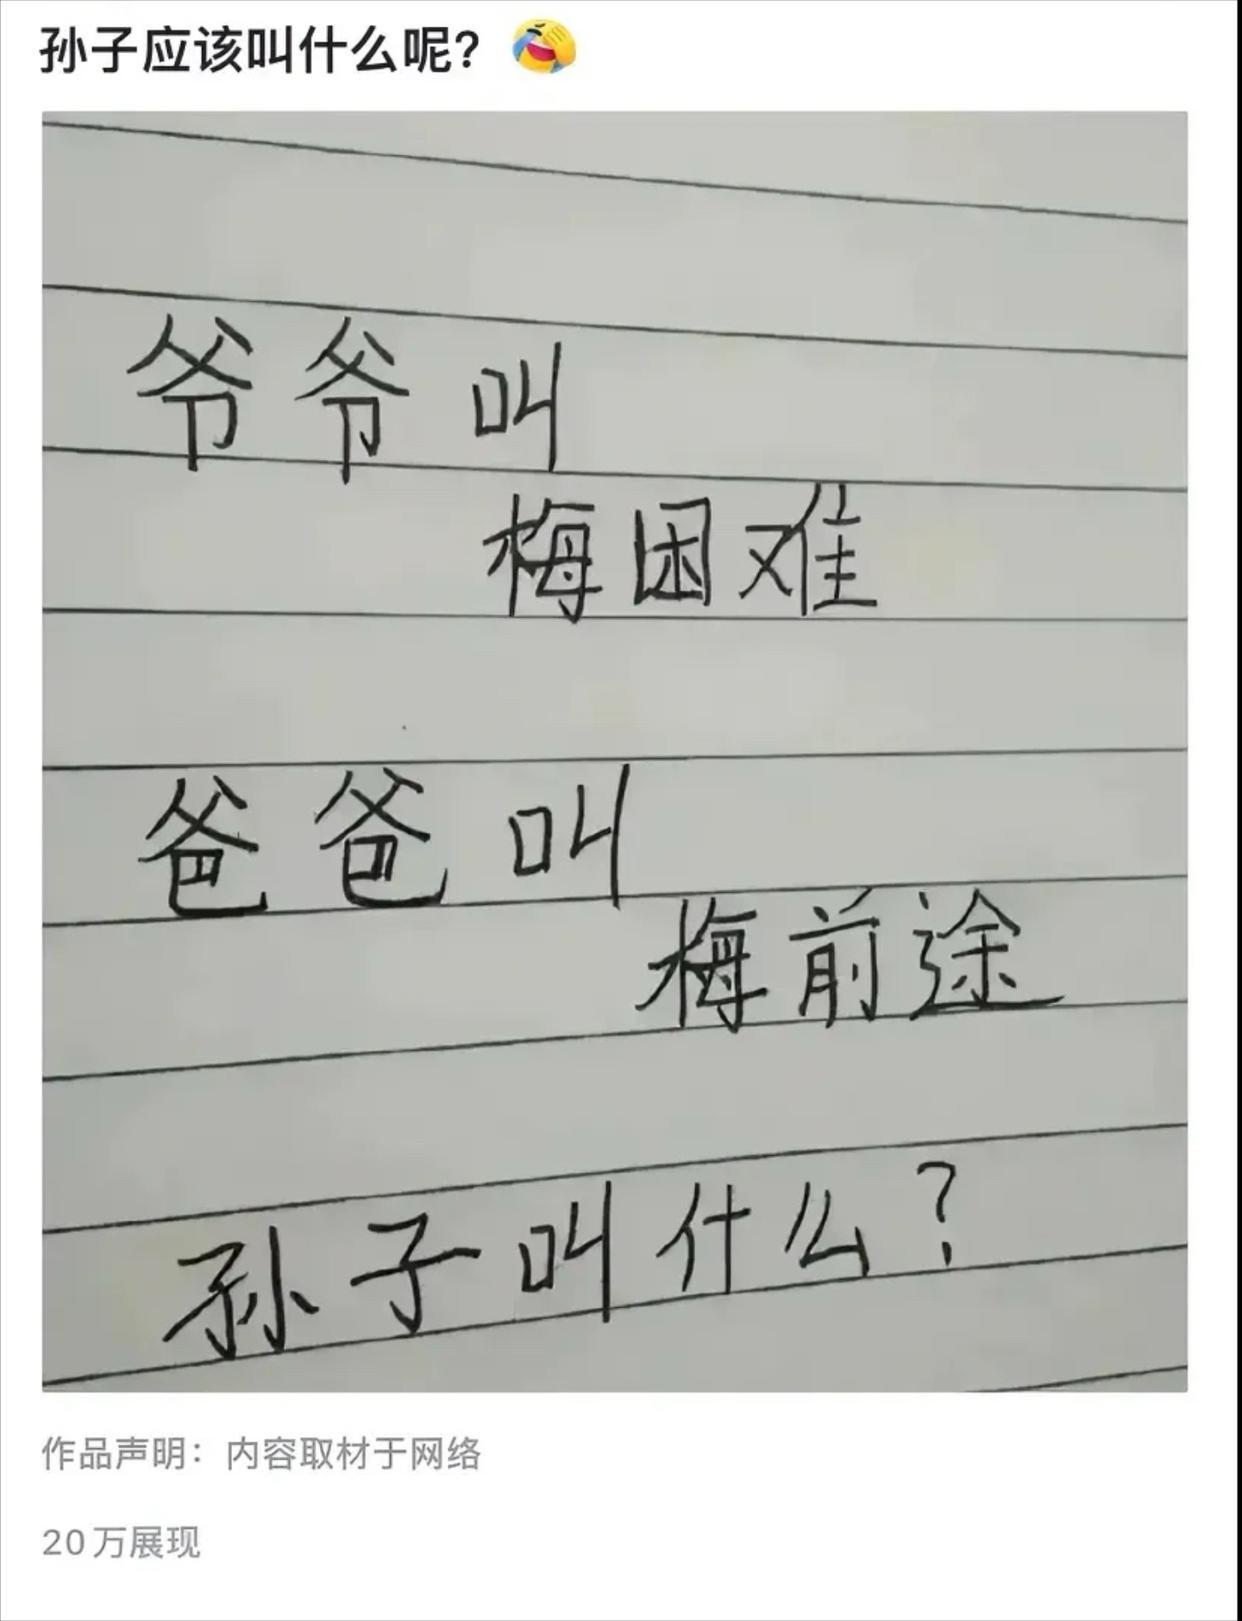 孙子应该叫什么呢？🤣
爷爷叫
梅困难
爸爸叫
梅前途
孙子叫什么?
作品声明：内容取材于网络
20万展现